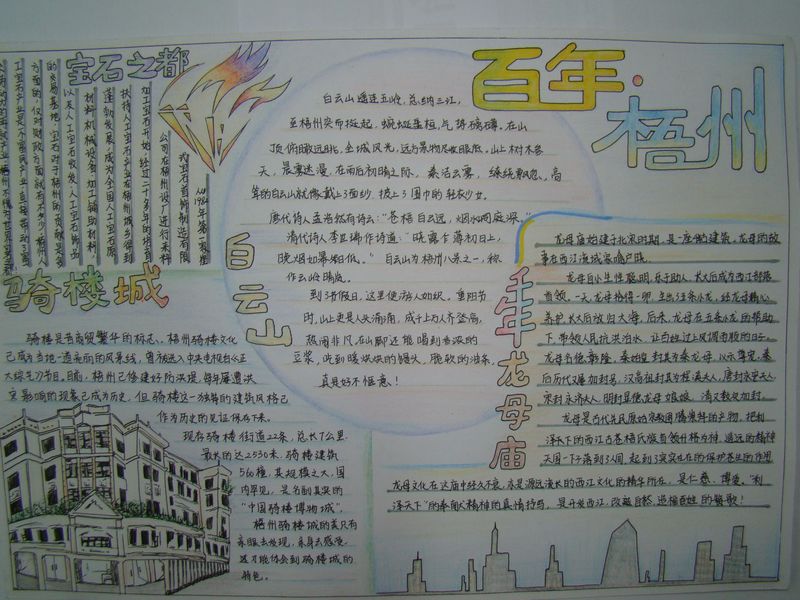 百年·
梧州
宝石之都
从1984年第一家型
戎宝石首饰制造有限
公司在梧州设厂进行来料
加工宝石开始,经过二十多年的培育
扶持人工宝石产业在梧州城乡得到
蓬勃发展,成为全国人工宝石
材料机械设备,加工辅助材料,
以来人工宝石收发,人工宝石饰品
的交易基地。宝石对于梧州的贡献是多
方面的,仅对财政方面就有不少,梧州人
工宝石产业是不富民产业,直接带动了
白云山
白云山遥连五岭,总纳三江,
至梧州突而拔起,蜿蜒叠桓,气势磅礴。在山
顶俯瞰远眺,全城风光,远方景物尽收眼底。山上树木参
天,晨雾迷漫,在雨后初晴之际,素洁云雾,缭绕飘忽,高
耸的白云山就像戴上了面纱,披上了围巾的轻衣少女。
唐代诗人孟浩然有诗云:“苍梧白云远,烟水洞庭深。”
清代诗人李世瑞作诗道:“晓霭乍薄初日上,
晓烟如幕相依。”白云山为梧州八景之一,称
作云岭晴岚。
到了节假日,这里便游人如织,重阳节
时,山上更是人头涌涌,成千上万人齐登高,
热闹非凡,在山脚还能喝到香浓的
豆浆,吃到暖烘烘的馒头,脆软的油条,
真是好不惬意!
骑楼城
骑楼是昔商贸繁华的标志。梧州骑楼文化
已成为当地一道亮丽的风景线,曾被选入中央电视台么正
大综艺〉节目。目前,梧州已修建好防洪堤,每年屡遭洪
灾影响的现象已成为历史,但骑楼这一独特的建筑风格已
作为历史的见证保存下来。
现存骑楼街道22条,总长7公里,
最长的达2530米,骑楼建筑
560幢,其规模之大,国
内罕见,是名副其实的
“中国骑楼博物城”。
梧州骑楼城的美只有
亲眼去发现,亲身去感受,
这才能体会到骑楼城的
特色。
千年龙母庙
龙母庙始建于北宋时期,是一座佛的建筑。龙母的故
事在西江流域家喻户晓。
龙母自小生性聪明,乐于助人,长大后成为西江部落
首领。一天,龙母拾得一卵,生出了五条小龙,经龙母精心
养护,长大后放归大海,后来,龙母在五条小龙的帮助
下,带领人民抗洪治水,让当地过上风调雨顺的日子。
龙母名德彰隆,秦始皇封其为秦龙母,以示尊宠,秦
后历代又屡加封号,汉高祖封其为程溪夫人,唐封永安夫人,
宋封永济夫人,明封显德龙母娘娘,清又数次加封。
龙母是古代先民原始宗教图腾崇拜的产物,把利
泽天下的西江古苍梧氏族首领升格为神,遥远的精神
天国一下子落到了人间,起到了实实在在的保护苍生的作用。
龙母文化在这庙中经久不衰,亦是源远流长的西江文化的精华所在,是仁慈、博爱、“利
泽天下”的奉自我精神的真情抒写,是开发西江,改造自然,造福百姓的赞歌!